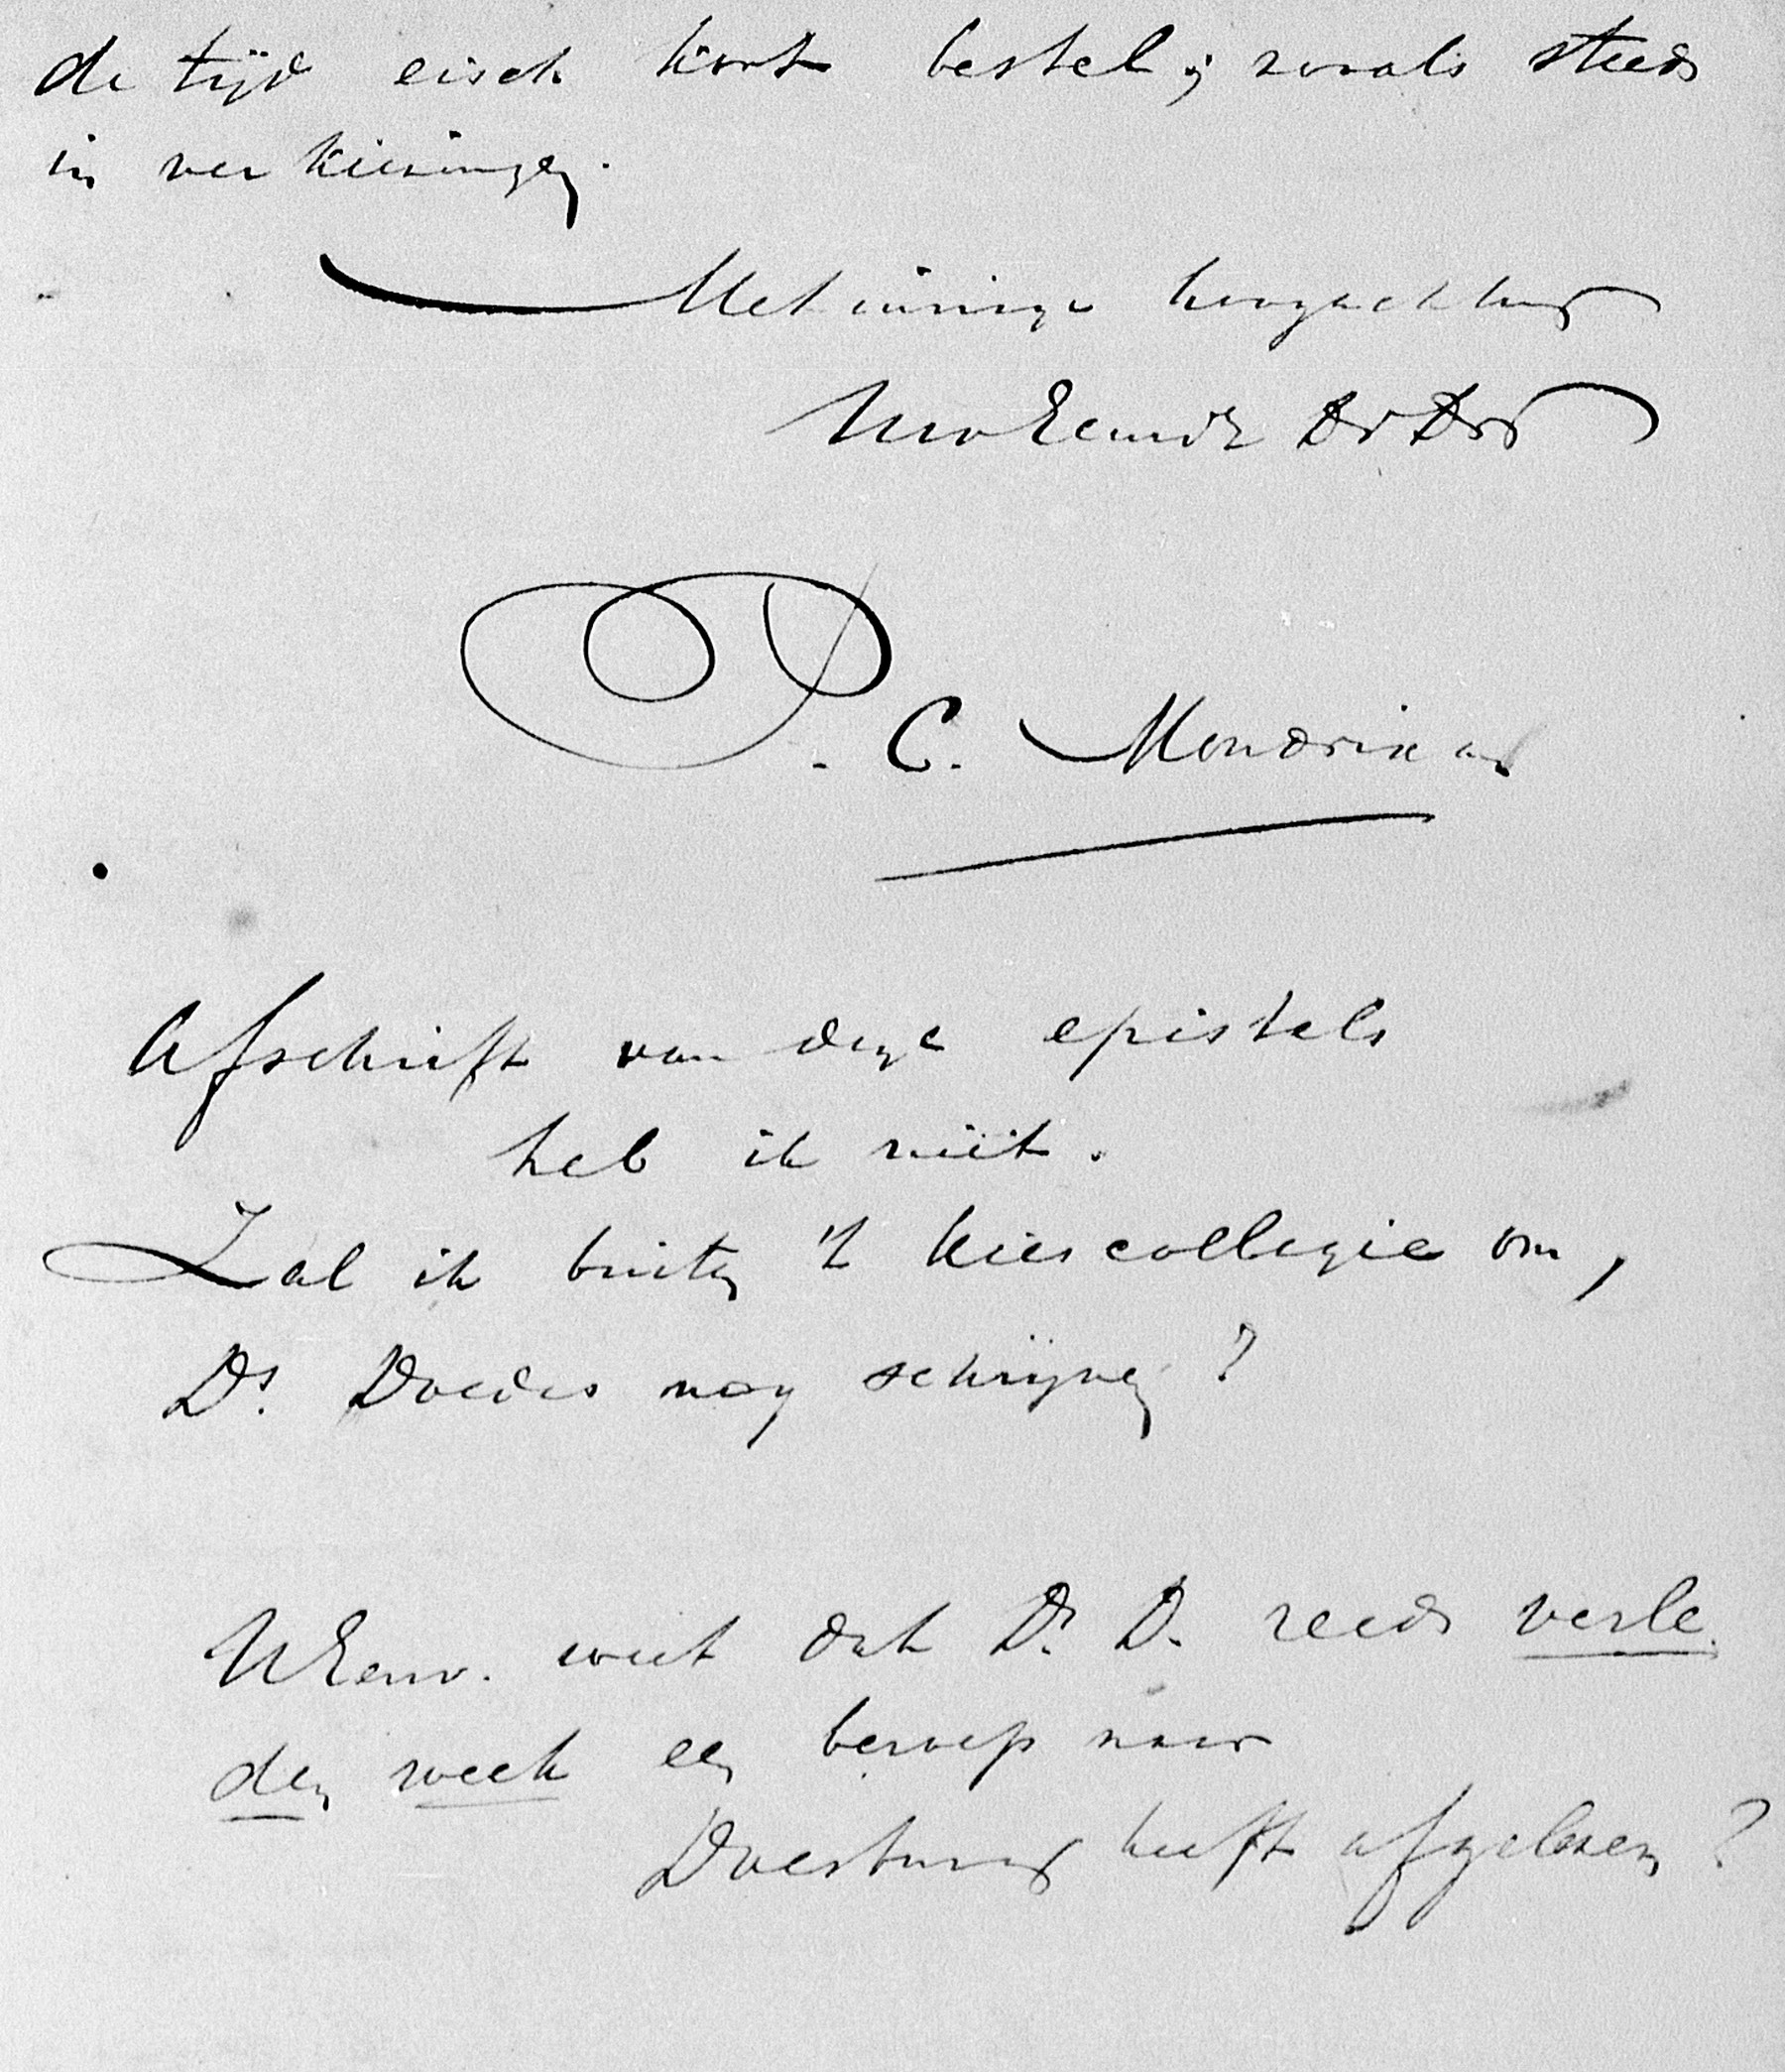 de tijd eisch kort bestek; zooals steeds
in verkiezingen.
Met innige hoogachting
P. C. Mondriaan
Afschrift van deze epistels
heb ik niet.
Zal ik buiten 't kiescollegie om,
Ds. Doedes nog schrijven?
UEerw. weet dat Ds. D. reeds verle
den week een beroep naar
heeft afgelezen?